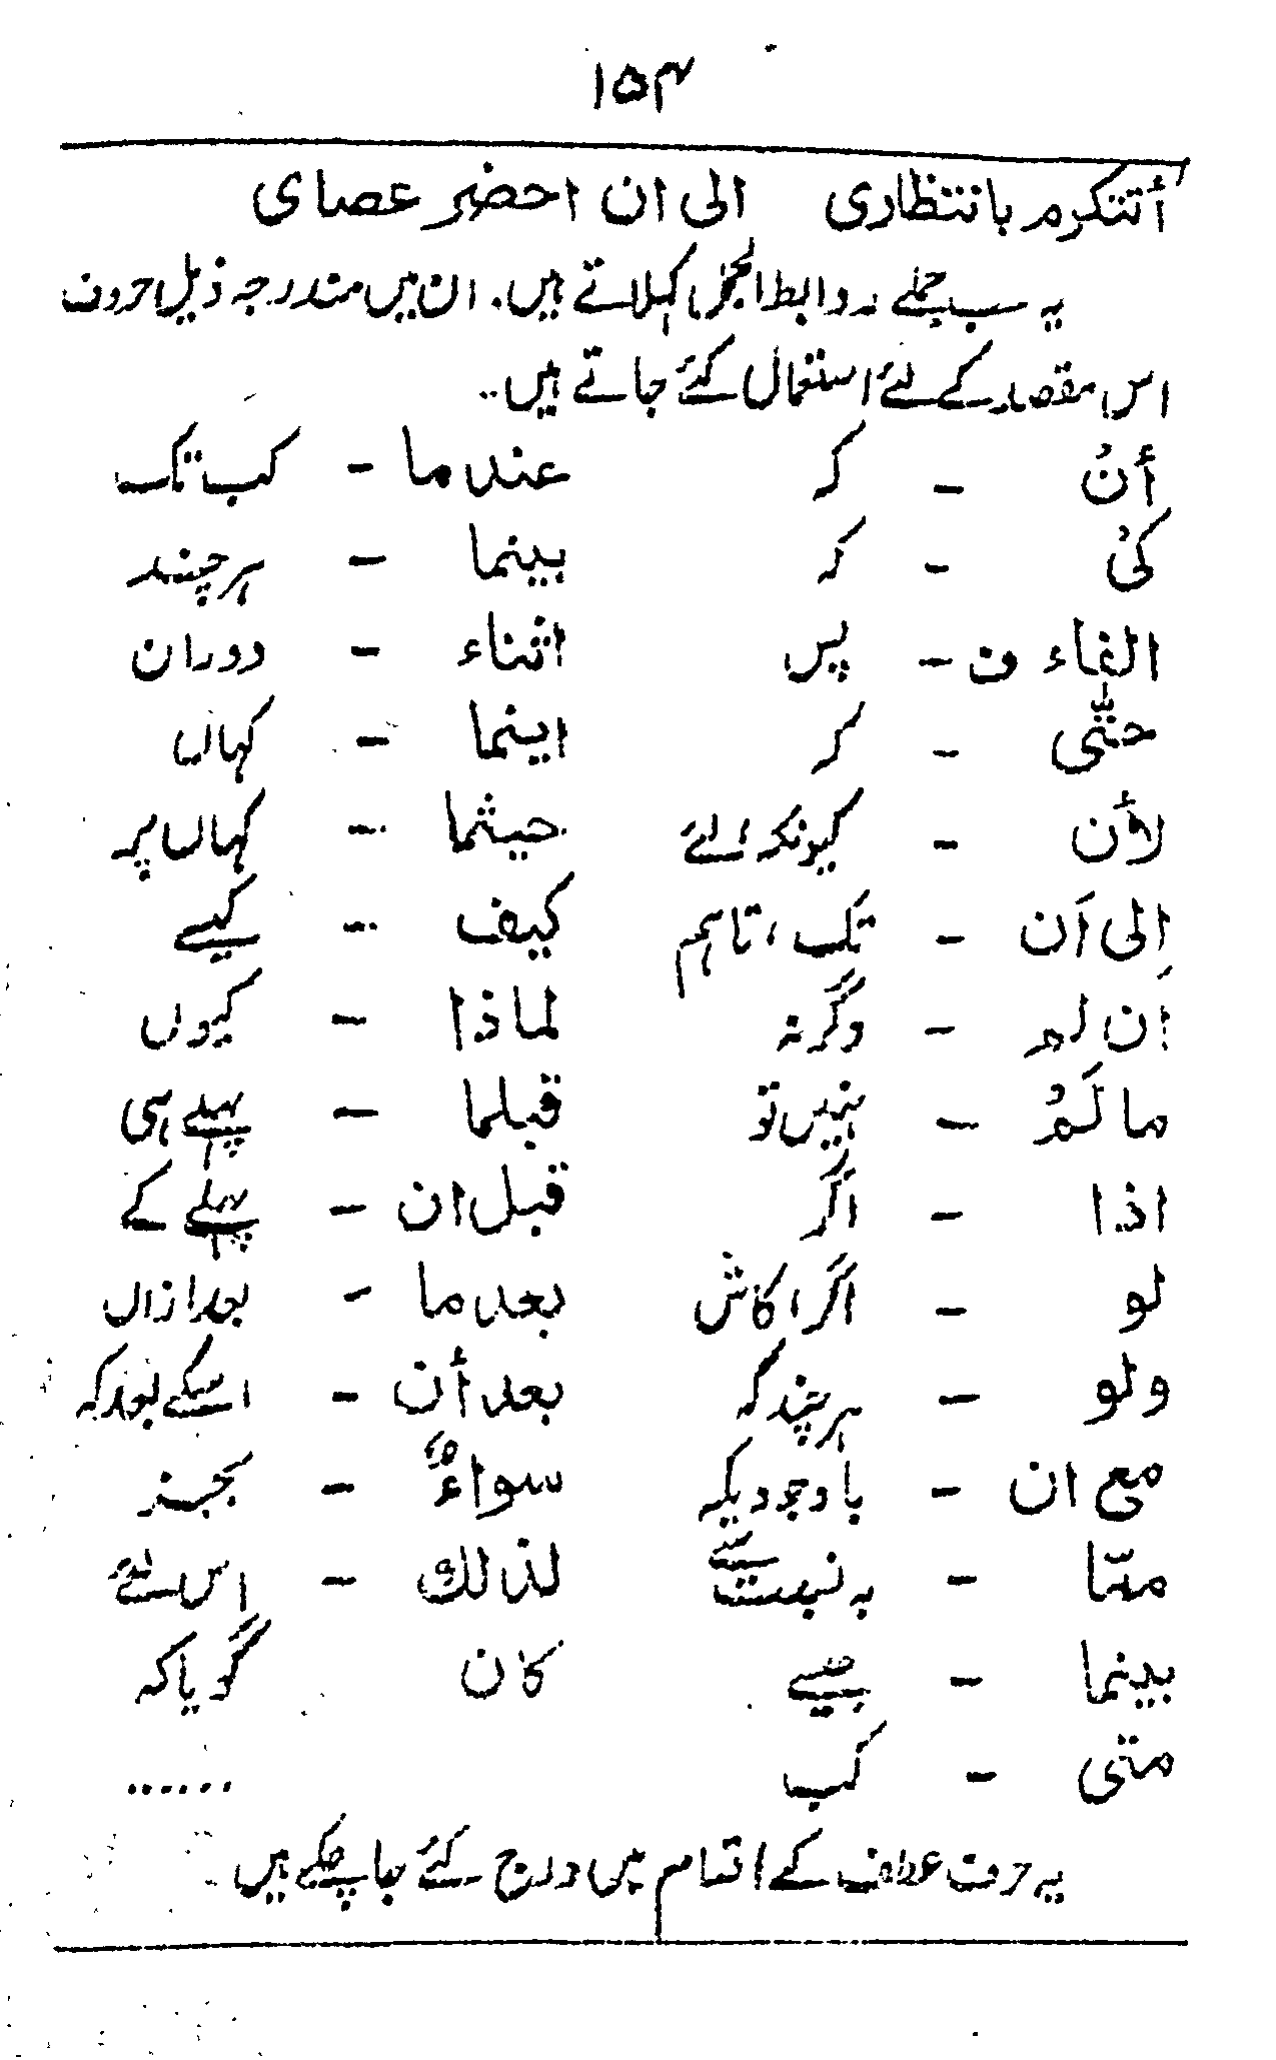 ۱۵۴
أتتكرم بانتظاری الی ان احضر عصای
یہ سب جملے روابط الجمل کہلاتے ہیں۔ ان میں مندرجہ ذیل حروف
اس مقصد کے لئے استعمال کئے جاتے ہیں۔
أنْ - کہ عندما - کب تک
کیْ - کہ بینما - ہرچند
الفاء ف - پس اثناء - دوران
حتّٰی - کر اینما - کہاں
لأن - کیونکہ، لئے حیثما - کہاں پر
إلی اَن - تک، تاہم کیف - کیسے
اِن لم - وگرنہ لماذا - کیوں
ما لَمْ - نہیں تو قبلما - پہلے ہی
اذا - اگر قبل ان - پہلے کے
لو - اگر، کاش بعد ما - بعد ازاں
ولو - ہر چند کہ بعد أن - اسکے بعد کہ
مع ان - باوجودیکہ سواءٌ - بجز
ممّا - بہ نسبت سے لذلك - اس لئے
بینما - جیسے کان گویا کہ
متی - کب ......
یہ حرف عطف کے اقسام میں درج کئے جا چکے ہیں۔